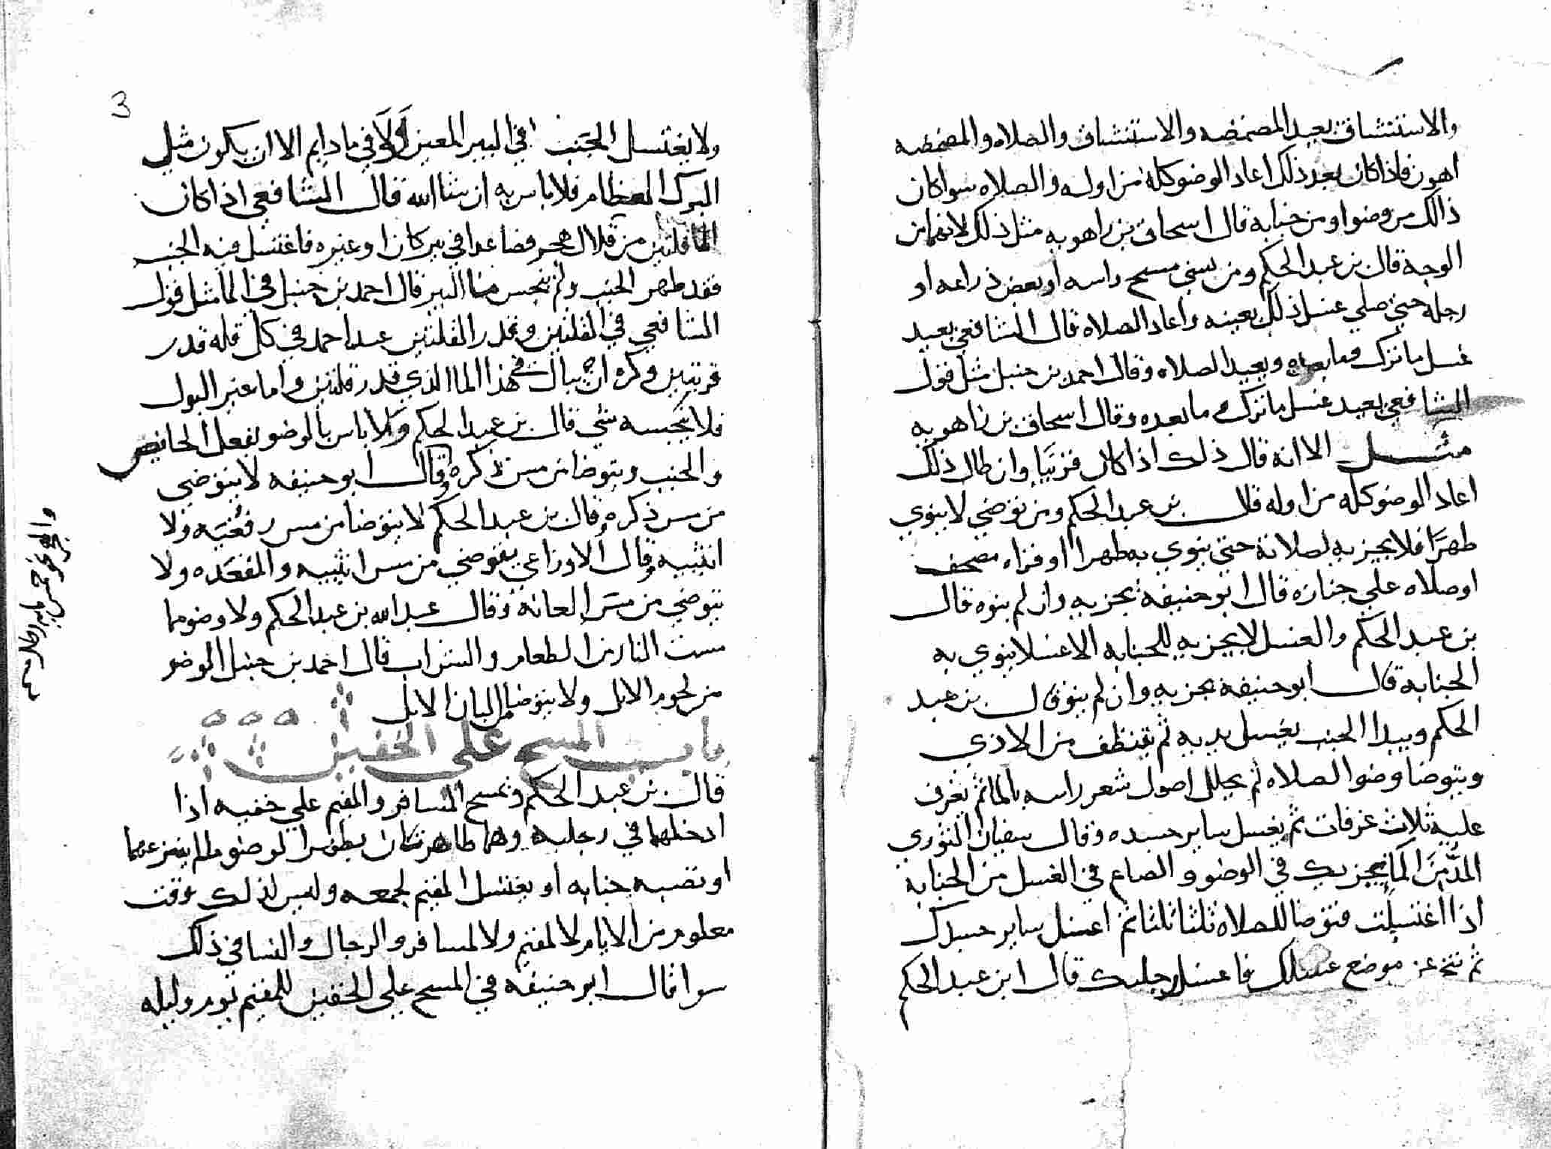 والاستنشاق يعيد المضمضه والاستنشاق والصلاه والمضمضه
اهون فاذا كان بعد ذلك اعاد الوضو كله من اوله والصلاه سوا كان
ذالك من وضوا ومن جنابة قال اسحاق بن راهويه مثل ذلك لانهما من
الوجه قال بن عبد الحكم ومن نسي مسح راسه او بعض ذراعه او
رجله حتي صلي غسل ذلك بعينه واعاد الصلاه قال الشافعي يعيد
غسل ما ترك وما بعده ويعيد الصلاه وقال احمد بن حنبل مثل قول
الشافعي يعيد غسل ما ترك وما بعده وقال اسحاق بن راهويه
مثل الا انه قال ذلك اذا كان قريبا وان طال ذلك
اعاد الوضو كله من اوله قال بن عبد الحكم ومن توضي لا ينوي
طهرا فلا يجزيه لصلاته حتى ينوي به طهرا او قراه مصحف
او صلاه علي جنازه قال ابو حنيفة يجزيه وان لم ينوه قال
بن عبد الحكم والغسل لا يجزيه للجنابه الا غسلا ينوي به
الجنابه قال ابو حنيفة يجزيه وان لم ينو قال بن عبد
الحكم ويبدا الجنب بغسل يديه ثم يتنظف من الاذي
ويتوضا وضوا الصلاه ثم يخلل اصول شعر راسه بالما ثم يغرف
عليه ثلاث غرفات ثم يغسل ساير جسده وقال سفيان الثوري
المد من الما يجزيك في الوضو والصاع في الغسل من الجنابة
اذا اغتسلت فتوضا للصلاه ثلثا ثلثا ثم اغسل ساير جسدك
ثم تنح عن موضع غسلك فاغسل رجليك قال ابن عبد الحكم
3
ولا يغتسل الجنب في البير المعين ولا في ما دايم الا ان يكون مثل
البرك العظام فلا باس به ان شا الله قال الشافعي اذا كان
الما قلتين من قلال هجر فصاعدا في بير كان او غيره فاغتسل فيه الجنب
فقد طهر الجنب ولم ينجس ما البير قال احمد بن حنبل في الما مثل قول
الشافعي في القلتين وقدر القلتين عند احمد في كل قله قدر
قربتين وكره ان يبال في هذا الما الذي قدر قلتين واما غير البول
فلا ينجسه شي قال بن عبد الحكم ولا باس بالوضو بفضل الحايض
والجنب ويتوضا من مس ذكره وقال ابو حنيفه لا يتوضي
من مس ذكره وقال بن عبد الحكم لا يتوضا من مس رفغيه ولا
انثييه وقال الاوزاعي يتوضي من مس انثييه والمقعده ولا
يتوضي من مس العانة وقال عبد الله بن عبد الحكم ولا وضو مما
مست النار من الطعام والشراب قال احمد بن حنبل الوضو
من لحوم الابل ولا يتوضا من البان الابل
باب المسح علي الخفين
قال بن عبد الحكم ويمسح المسافر والمقيم علي خفيه اذا
ادخلهما في رجليه وهما طاهرتان بطهر الوضو ما لم ينزعهما
او تصبه جنابه او يغتسل المقيم لجمعه وليس لذلك وقت
معلوم من الايام لا لمقيم ولا لمسافر والرجال والنسا في ذلك
سوا قال ابو حنيفة في المسح علي الخفين للمقيم يوم وليله